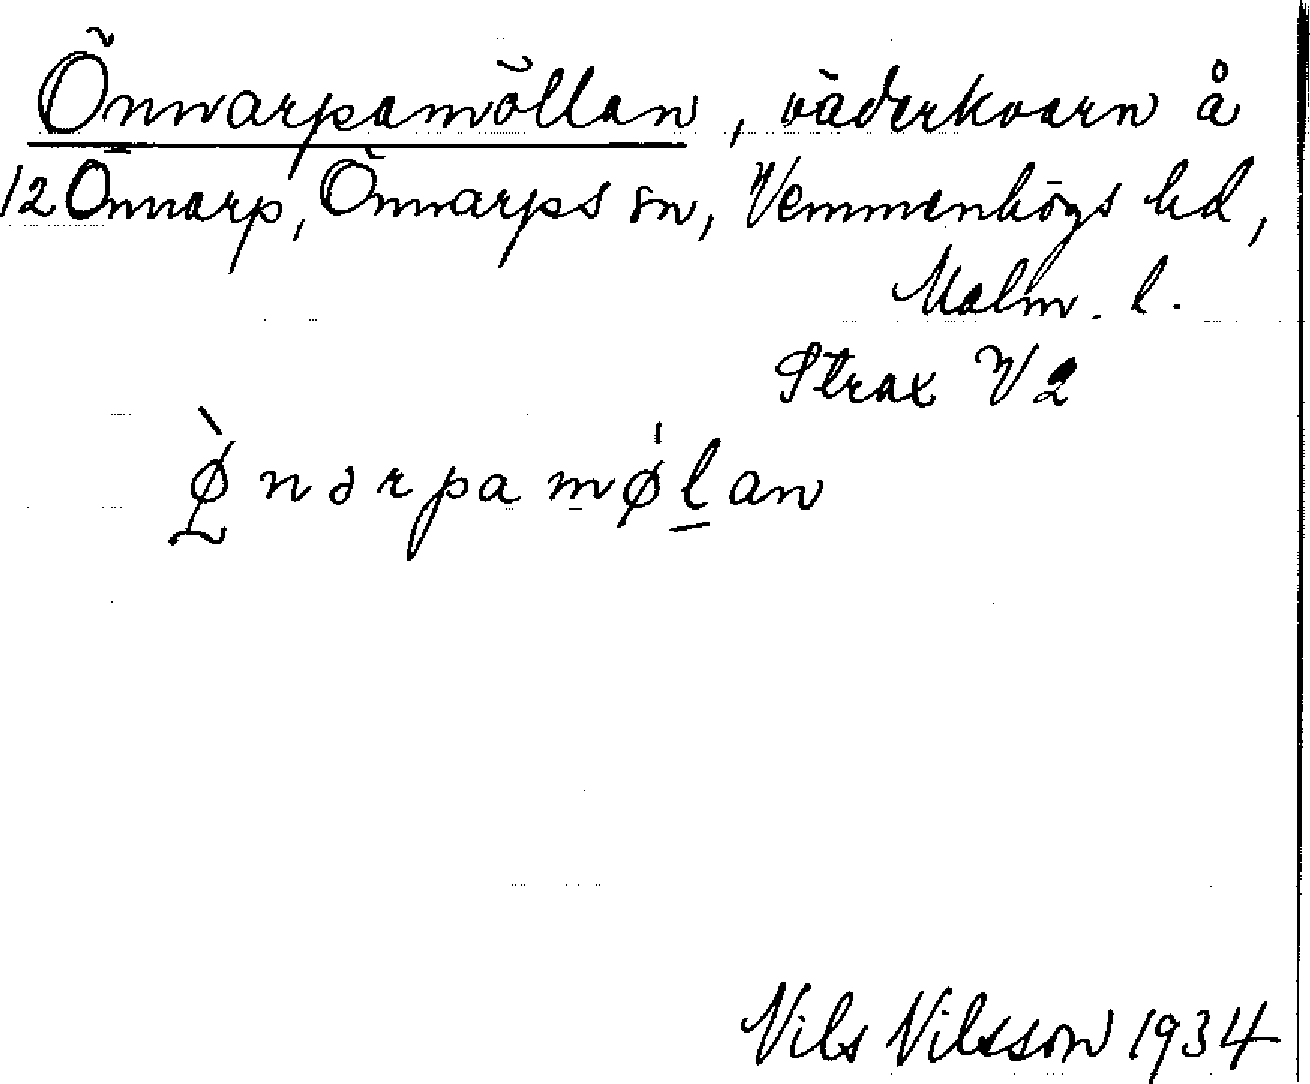 Önnarpamöllan, väderkvarn å
12 Önnarp, Önnarps sn, Vemmenhögs hd,
Malm. l.
Strax V 2
ø̀nərpamǿlan
Nils Nilsson 1934